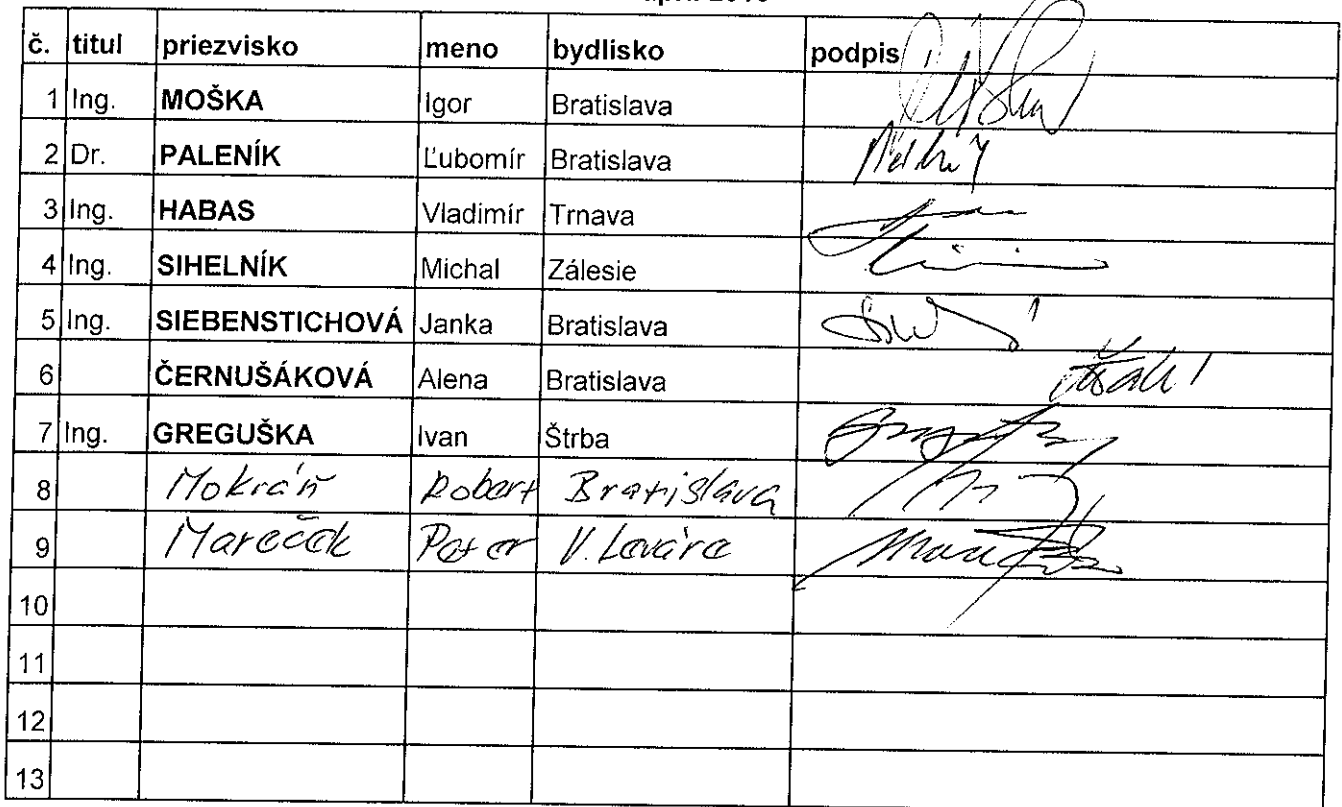 č. titul priezvisko meno bydlisko podpis
1 Ing. MOŠKA Igor Bratislava
2 Dr. PALENÍK Ľubomír Bratislava
3 Ing. HABAS Vladimír Trnava
4 Ing. SIHELNÍK Michal Zálesie
5 Ing. SIEBENSTICHOVÁ Janka Bratislava
6 ČERNUŠÁKOVÁ Alena Bratislava
7 Ing. GREGUŠKA Ivan Štrba
8 Mokráň Robert Bratislava
9 Mareček Peter V. Leváre
10
11
12
13